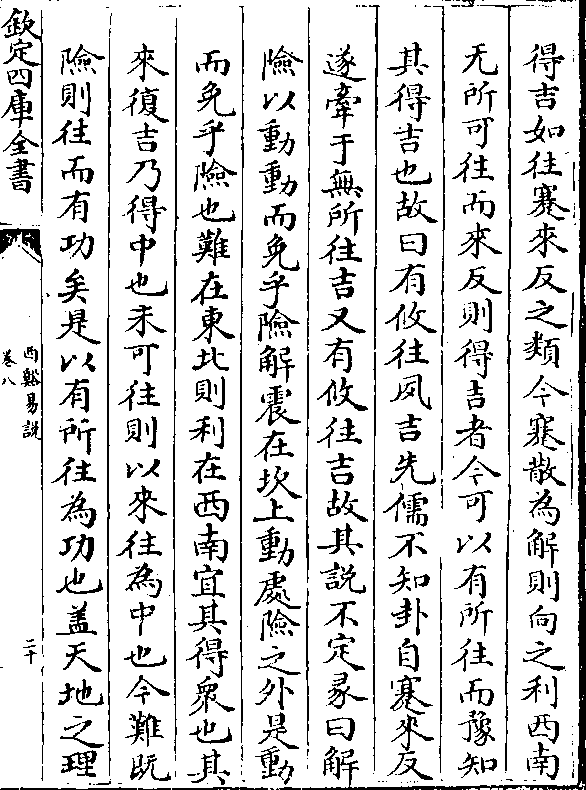 得吉如往蹇來反之類今蹇散為解則向之利西南
无所可往而來反則得吉者今可以有所往而豫知
其得吉也故曰有攸往夙吉先儒不知卦自蹇來反
遂牽于無所往吉又有攸往吉故其說不定彖曰解
險以動動而免乎險解震在坎上動處險之外是動
而免乎險也難在東北則利在西南宜其得衆也其
來復吉乃得中也未可往則以來往為中也今難既
險則往而有功矣是以有所往為功也盖天地之理
欽定四庫全書
西谿易說
卷八
二十